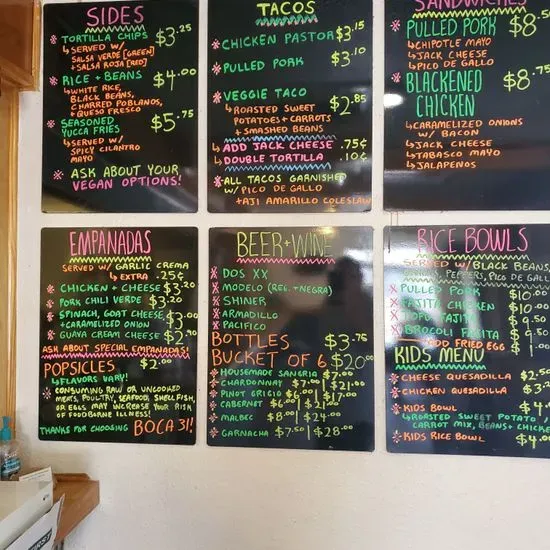 SIDES
* TORTILLA CHIPS $3.25
↳ SERVED W/
SALSA VERDE [GREEN]
+ SALSA ROJA [RED]
* RICE + BEANS $4.00
↳ WHITE RICE,
BLACK BEANS,
CHARRED POBLANOS,
+ QUESO FRESCO
* SEASONED
YUCCA FRIES $5.75
↳ SERVED W/
SPICY CILANTRO
MAYO
* ASK ABOUT YOUR
VEGAN OPTIONS!
TACOS
* CHICKEN PASTOR $3.15
* PULLED PORK $3.10
* VEGGIE TACO $2.85
↳ ROASTED SWEET
POTATOES + CARROTS
+ SMASHED BEANS
↳ ADD JACK CHEESE .75¢
↳ DOUBLE TORTILLA .10¢
* ALL TACOS GARNISHED
W/ PICO DE GALLO
+ AJI AMARILLO COLESLAW
SANDWICHES
* PULLED PORK $8.50
↳ CHIPOTLE MAYO
↳ JACK CHEESE
↳ PICO DE GALLO
* BLACKENED
CHICKEN $8.75
↳ CARAMELIZED ONIONS
W/ BACON
↳ JACK CHEESE
↳ TABASCO MAYO
↳ JALAPENOS
EMPANADAS
SERVED W/ GARLIC CREMA
↳ EXTRA .25¢
* CHICKEN + CHEESE $3.20
* PORK CHILI VERDE $3.20
* SPINACH, GOAT CHEESE $3.00
+ CARAMELIZED ONION
* GUAVA CREAM CHEESE $2.90
ASK ABOUT SPECIAL EMPANADAS!
POPSICLES $2.00
↳ FLAVORS VARY!
* CONSUMING RAW OR UNCOOKED
MEATS, POULTRY, SEAFOOD, SHELLFISH,
OR EGGS MAY INCREASE YOUR RISK
OF FOODBORNE ILLNESS!
THANKS FOR CHOOSING BOCA 31!
BEER + WINE
* DOS XX
* MODELO (REG. + NEGRA)
* SHINER
* ARMADILLO
* PACIFICO
BOTTLES $3.75
BUCKET OF 6 $20.00
* HOUSEMADE SANGRIA $7.00
* CHARDONNAY $7.00 | $21.00
* PINOT GRIGIO $6.00 | $17.00
* CABERNET
* MALBEC $8.00 | $24.00
* GARNACHA $7.50 | $28.00
RICE BOWLS
SERVED W/ BLACK BEANS,
PEPPERS, PICO DE GALLO
* PULLED PORK $10.00
* FAJITA CHICKEN $10.00
* TOFU FAJITA $9.50
* BROCOLI FAJITA $9.50
ADD FRIED EGG
KIDS MENU
* CHEESE QUESADILLA $2.
* CHICKEN QUESADILLA $3.
* KIDS BOWL $4.
↳ ROASTED SWEET POTATO
CARROT MIX, BEANS + CHICKEN
* KIDS RICE BOWL $4.